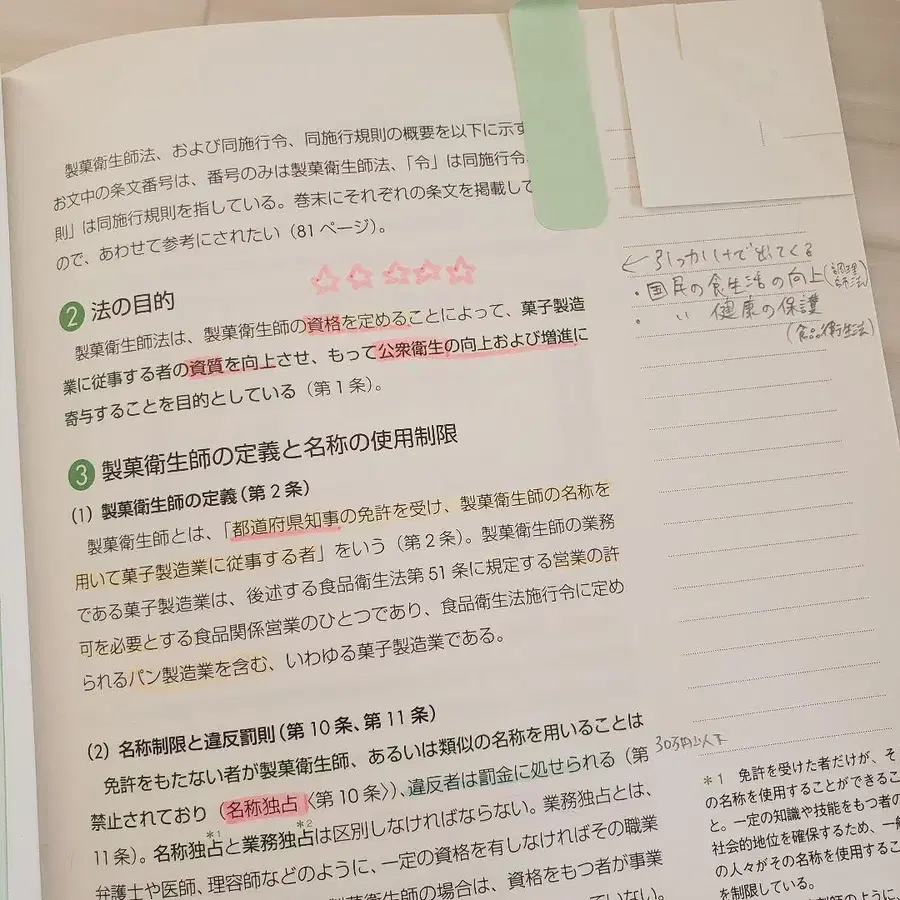 製菓衛生師法、および同施行令、同施行規則の概要を以下に示す
お文中の条文番号は、番号のみは製菓衛生師法、「令」は同施行令
則」は同施行規則を指している。巻末にそれぞれの条文を掲載して
ので、あわせて参考にされたい（81ページ）。
2 法の目的
製菓衛生師法は、製菓衛生師の資格を定めることによって、菓子製造
業に従事する者の資質を向上させ、もって公衆衛生の向上および増進に
寄与することを目的としている（第1条）。
3 製菓衛生師の定義と名称の使用制限
(1) 製菓衛生師の定義（第2条）
製菓衛生師とは、「都道府県知事の免許を受け、製菓衛生師の名称を
用いて菓子製造業に従事する者」をいう（第2条）。製菓衛生師の業務
である菓子製造業は、後述する食品衛生法第51条に規定する営業の許
可を必要とする食品関係営業のひとつであり、食品衛生法施行令に定め
られるパン製造業を含む、いわゆる菓子製造業である。
(2) 名称制限と違反罰則（第10条、第11条）
免許をもたない者が製菓衛生師、あるいは類似の名称を用いることは
禁止されており（名称独占〈第10条〉）、違反者は罰金に処せられる（第
11条）。名称独占*1と業務独占*2は区別しなければならない。業務独占とは、
弁護士や医師、理容師などのように、一定の資格を有しなければその職業
製菓衛生師の場合は、資格をもつ者が事業
ていない。
←引っかけで出てくる
・国民の食生活の向上(調理師法)
・〃 健康の保護
(食品衛生法)
30万円以下
*1 免許を受けた者だけが、そ
の名称を使用することができるこ
と。一定の知識や技能をもつ者の
社会的地位を確保するため、一般
の人々がその名称を使用するこ
を制限している。